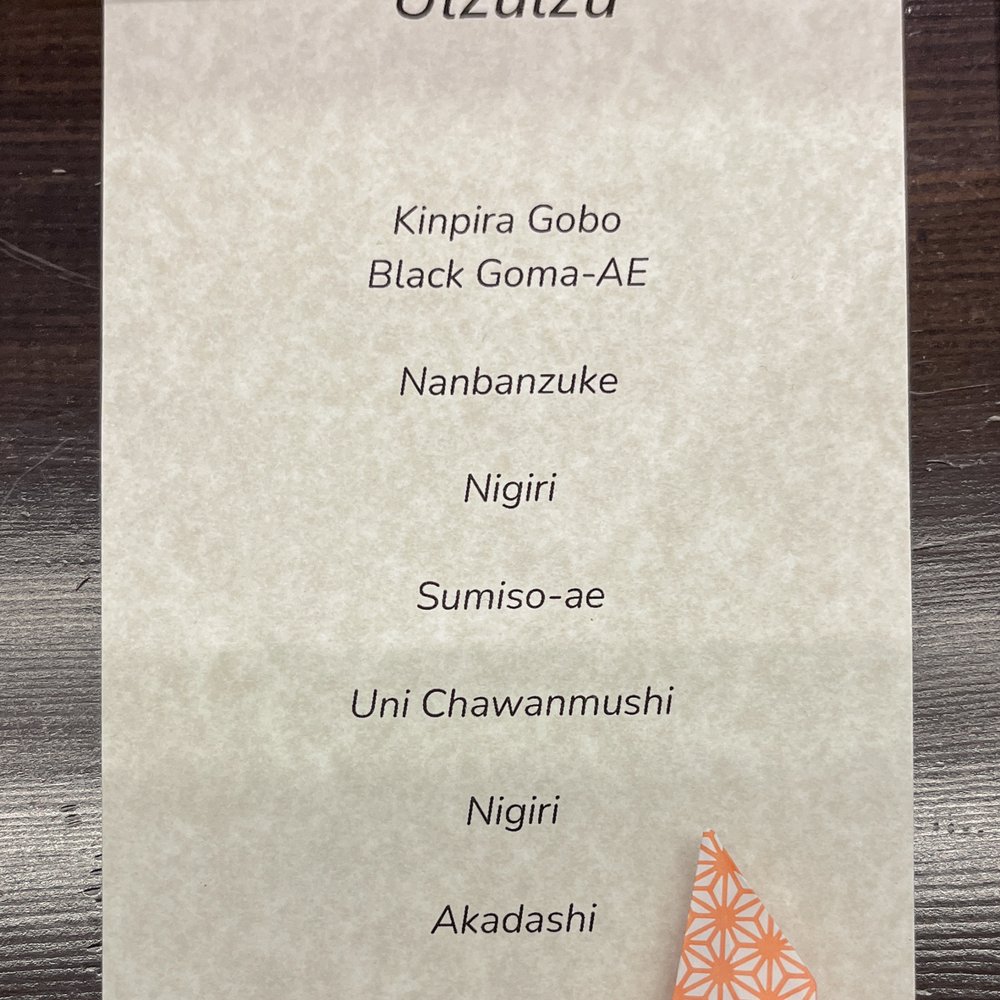 Kinpira Gobo
Black Goma-AE
Nanbanzuke
Nigiri
Sumiso-ae
Uni Chawanmushi
Nigiri
Akadashi